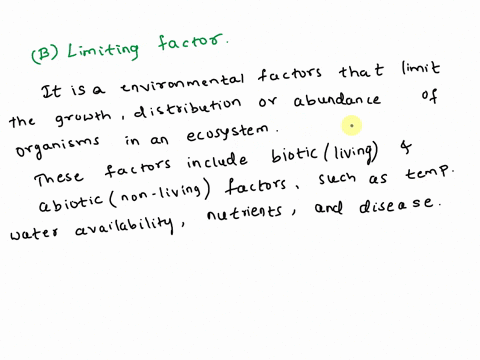 (B) Limiting factor.
It is a environmental factors that limit
the growth, distribution or abundance of
organisms in an ecosystem.
These factors include biotic (living) &
abiotic (non-living) factors, such as temp.
water availability, nutrients, and disease.